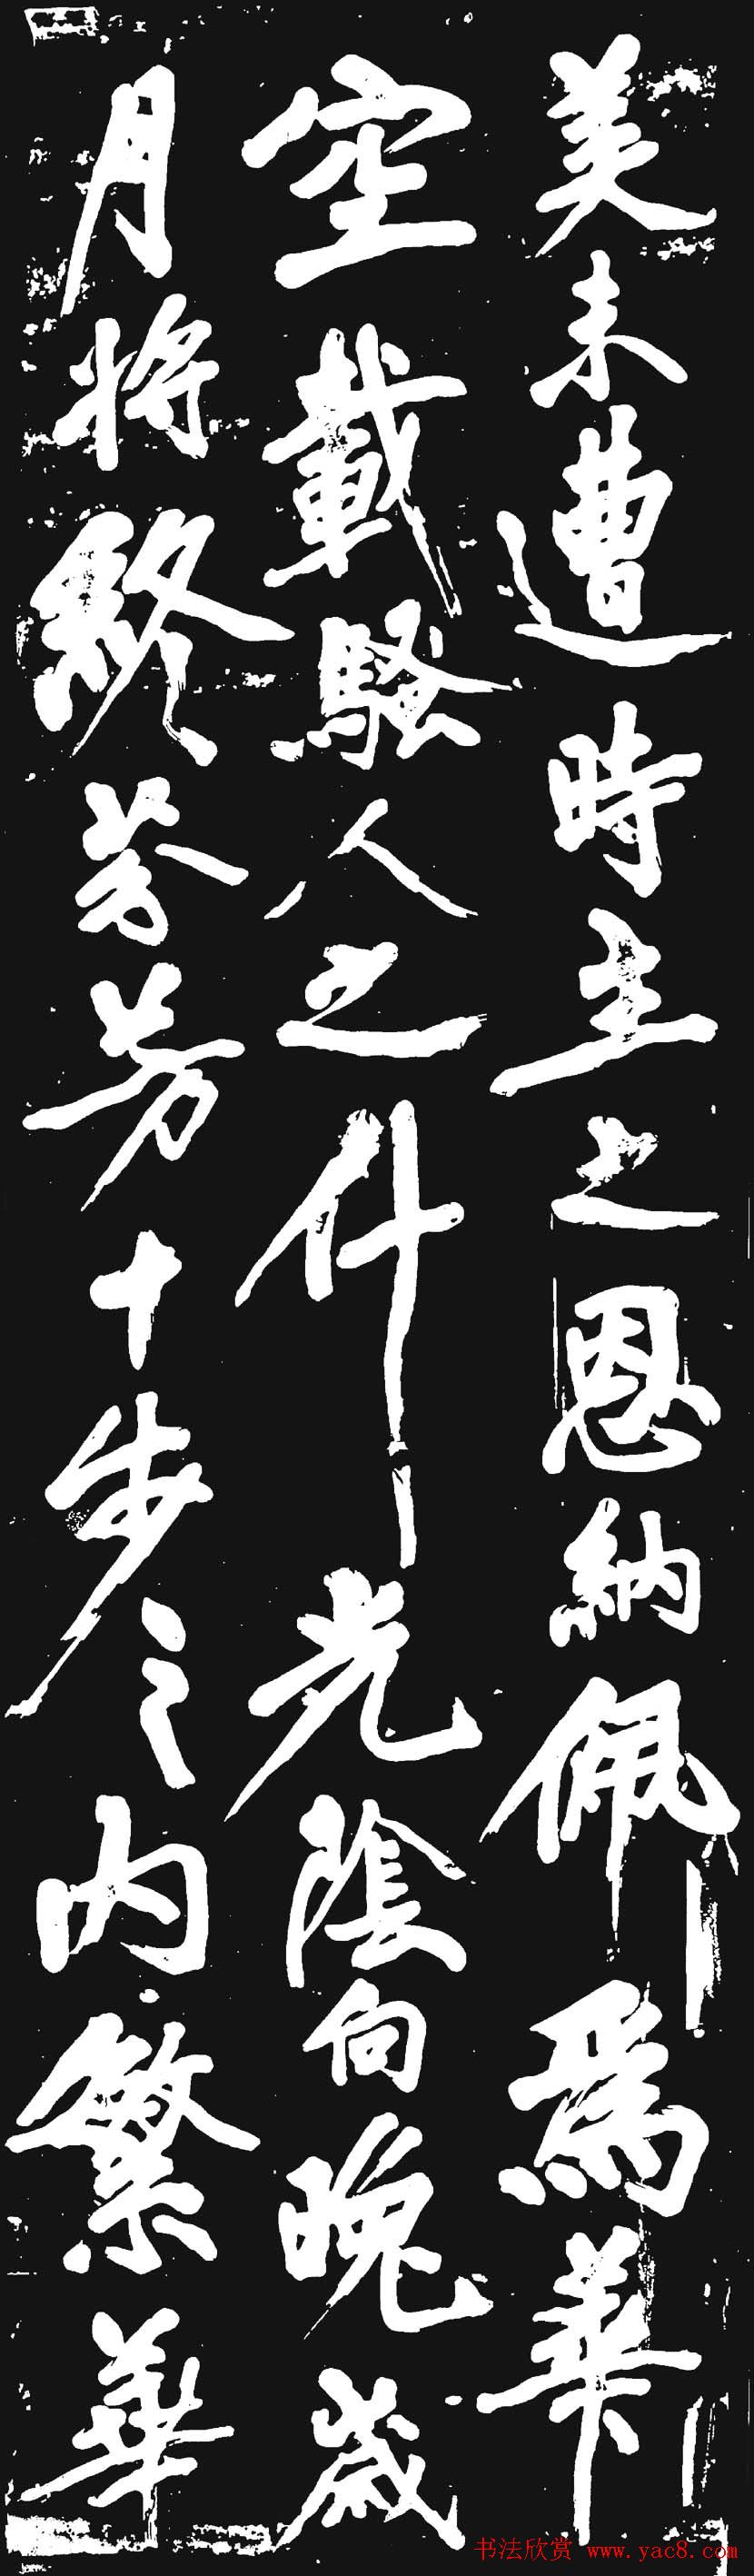 美未遭時主之恩納佩爲華
空載騷人之什光陰向晚歲
月將終芬芳十步之内繁華
书法欣赏 www.yac8.com